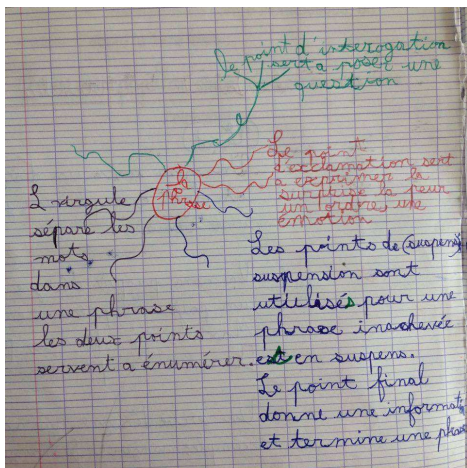 le point d'interogation
sert a poser une
question
Le point
d'exclamation sert
a exprimer la
surprise la peur
un ordre, une
émotion
la
phrase
L virgule
sépare les
mots
dans
une phrase
les deux points
servent a énumérer.
Les points de (suspensi)
suspension sont
utilisés pour une
phrase inachevée
est en suspens.
Le point final
donne une informati
et termine une phrase